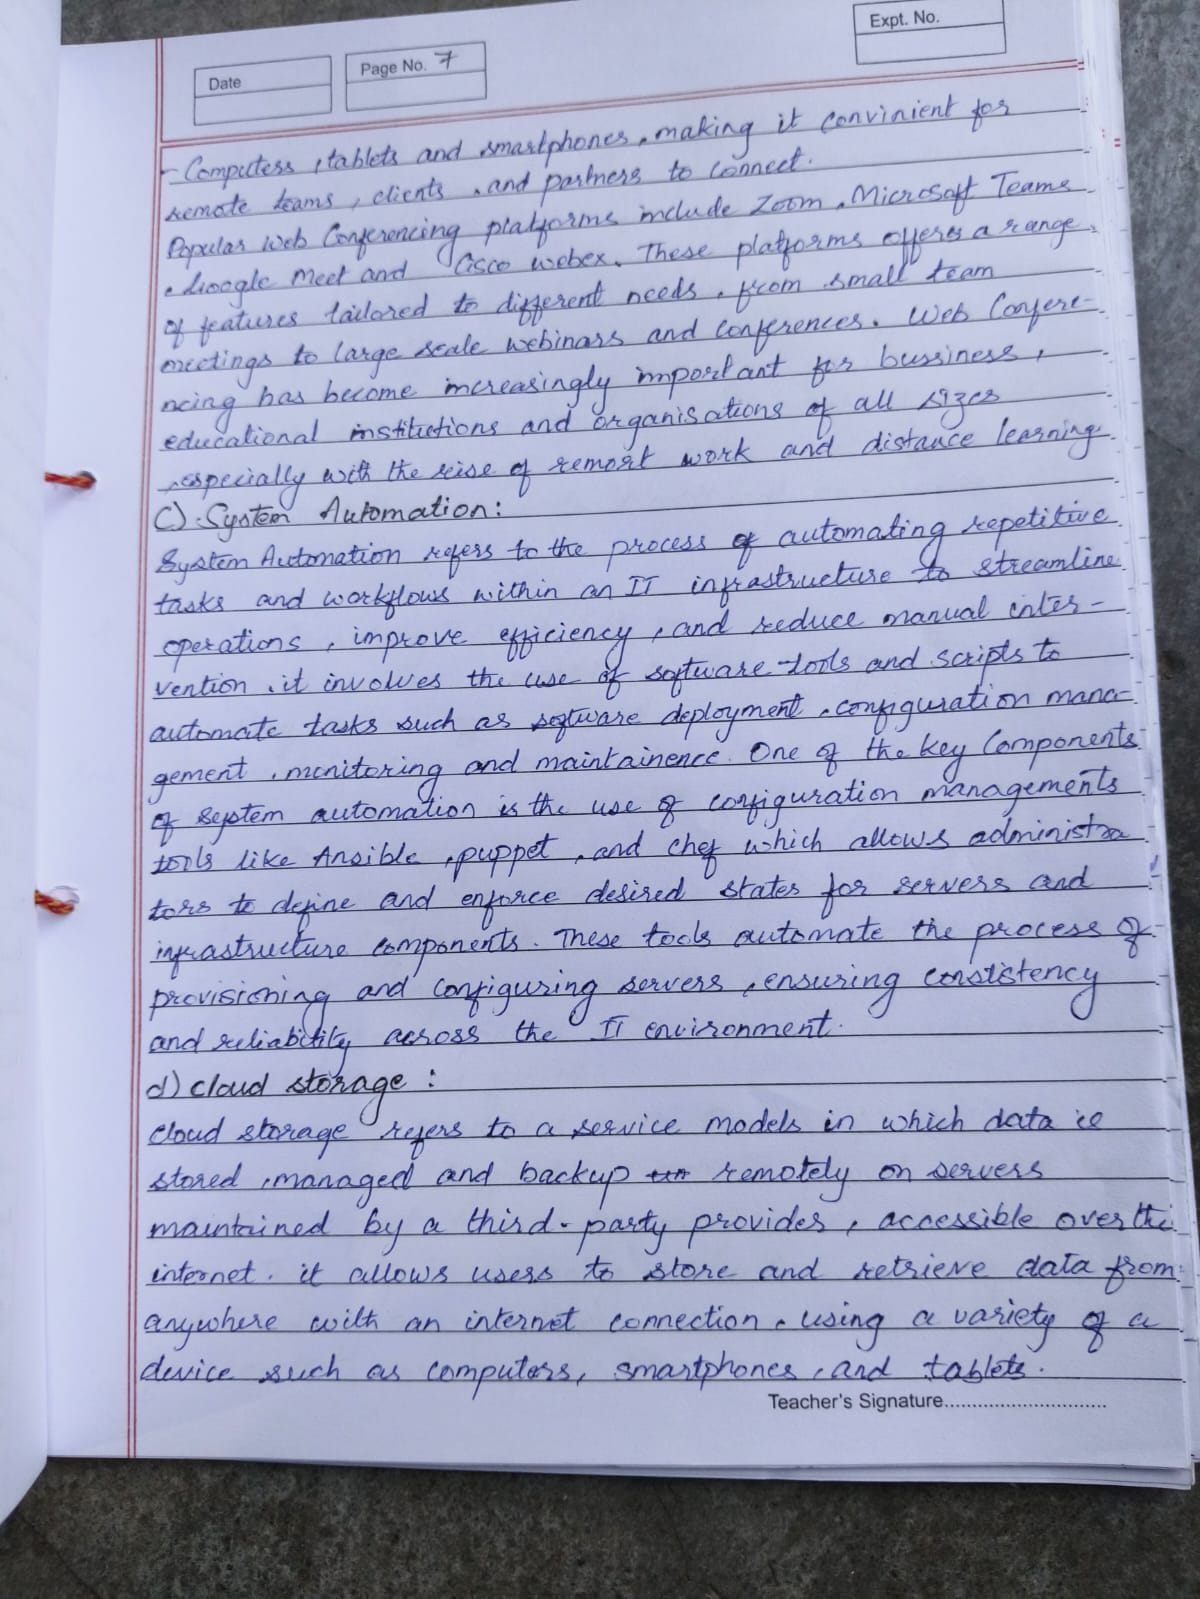 Expt. No.
Date
Page No. 7
- Computers, tablets and smartphones, making it convinient for
remote teams, clients, and partners to connect.
Popular Web Conferencing platforms include Zoom, Microsoft Teams
, Google Meet and Cisco webex. These platforms offeres a range
of features tailored to different needs, from small team
meetings to large scale webinars and conferences. Web Confere-
ncing has become increasingly important for bussiness,
educational institutions and organisations of all sizes
, especially with the reise of remort work and distance learning.
C) System Automation:
System Automation refers to the process of automating repetitive
tasks and workflows within an IT infrastructure to streamline
operations, improve efficiency, and reduce manual inter-
vention, it involves the use of software tools and scripts to
automate tasks such as software deployment, configuration mana-
gement, monitoring and maintainence. One of the key Components
of system automation is the use of configuration managements
tools like Ansible, puppet, and chef which allows administra
tors to define and enforce desired states for servers and
infrastructure components. These tools automate the process of
provisioning and configuring servers, ensuring consistency
and reliability across the IT environment.
d) cloud storage:
cloud storage refers to a service models in which data is
stored, managed and backup remotely on servers
maintained by a third-party provides, accessible over the
internet. it allows users to store and retrieve data from
anywhere with an internet connection, using a variety of a
device such as computers, smartphones, and tablets.
Teacher's Signature..............................